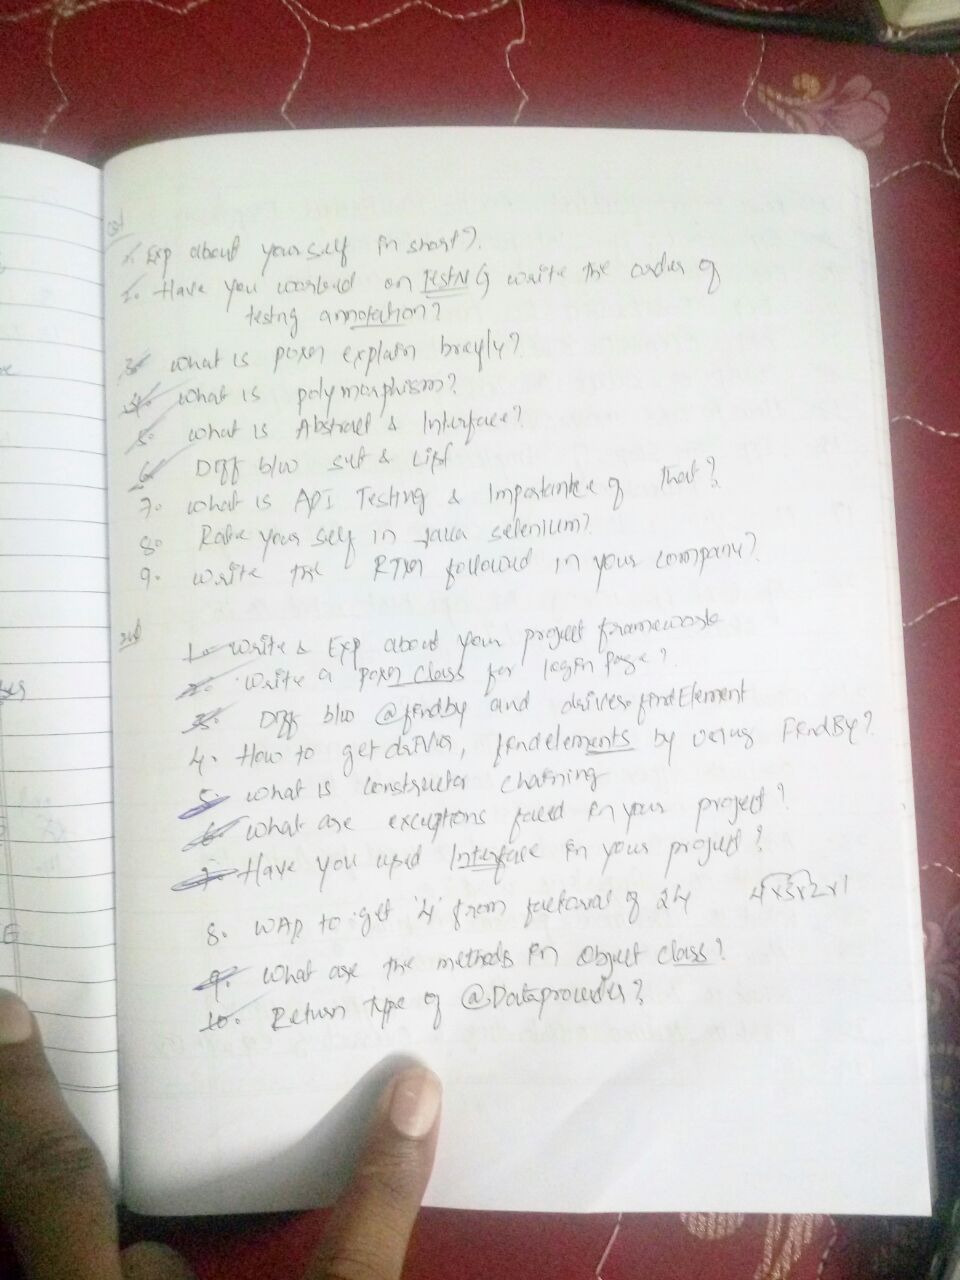 1st
1. Exp about yourself in short?
2. Have you worked on TestNG write the order of
testng annotation?
3. what is poxm explain breyfly?
4. what is polymorphism?
5. what is Abstract & Interface?
6. Diff b/w set & List
7. what is API Testing & Importantce of that?
8. Rate your self in Java selenium?
9. write the RTM followed in your company?
2nd
1. write & Exp about your project framework
2. write a poxm class for login page?
3. Diff b/w @findby and driver.findElement
4. How to get driver, findelements by using FindBy?
5. what is constructor chaining
6. what are exceptions faced in your project?
7. Have you used Interface in your project?
8. WAP to get '4' from factorial of 24 4x3x2x1
9. what are the methods in Object class?
10. Return type of @Dataprovider?